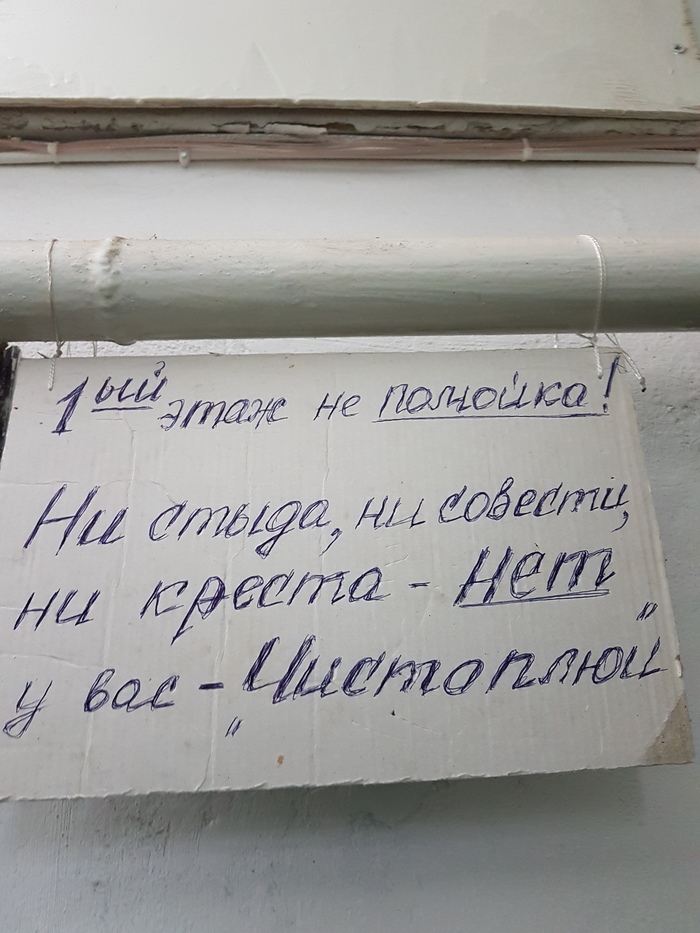 1ый этаж не помойка!
Ни стыда, ни совести,
ни креста - нет
у вас - „Чистоплюи"